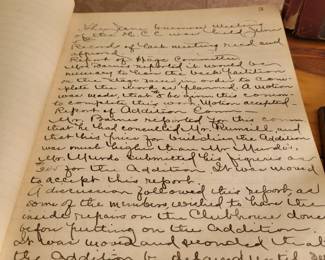 3
The June business meeting
of the M.C.C. was held June
Records of last meeting read and
approved.
Report of Stage Committee
Mr. Barnes reported it would be
necessary to have the back partition
on the stage raised in order to com-
plete the work as planned. A motion
was made, that to be given this comm.
to complete this work. Motion accepted.
Report of Addition Comm.
Mr. Barnes reported for this comm.
that he had consulted Mr. Russell, and
that his price for building the Addition
was much higher than Mr. Murdo's.
Mr. Murdo submitted his figures as
for the Addition. It was moved
to accept this report.
A discussion followed this report, as
some of the members wished to have the
inside repairs on the Clubhouse done
before putting on the Addition.
It was moved and seconded that
the Addition be delayed until